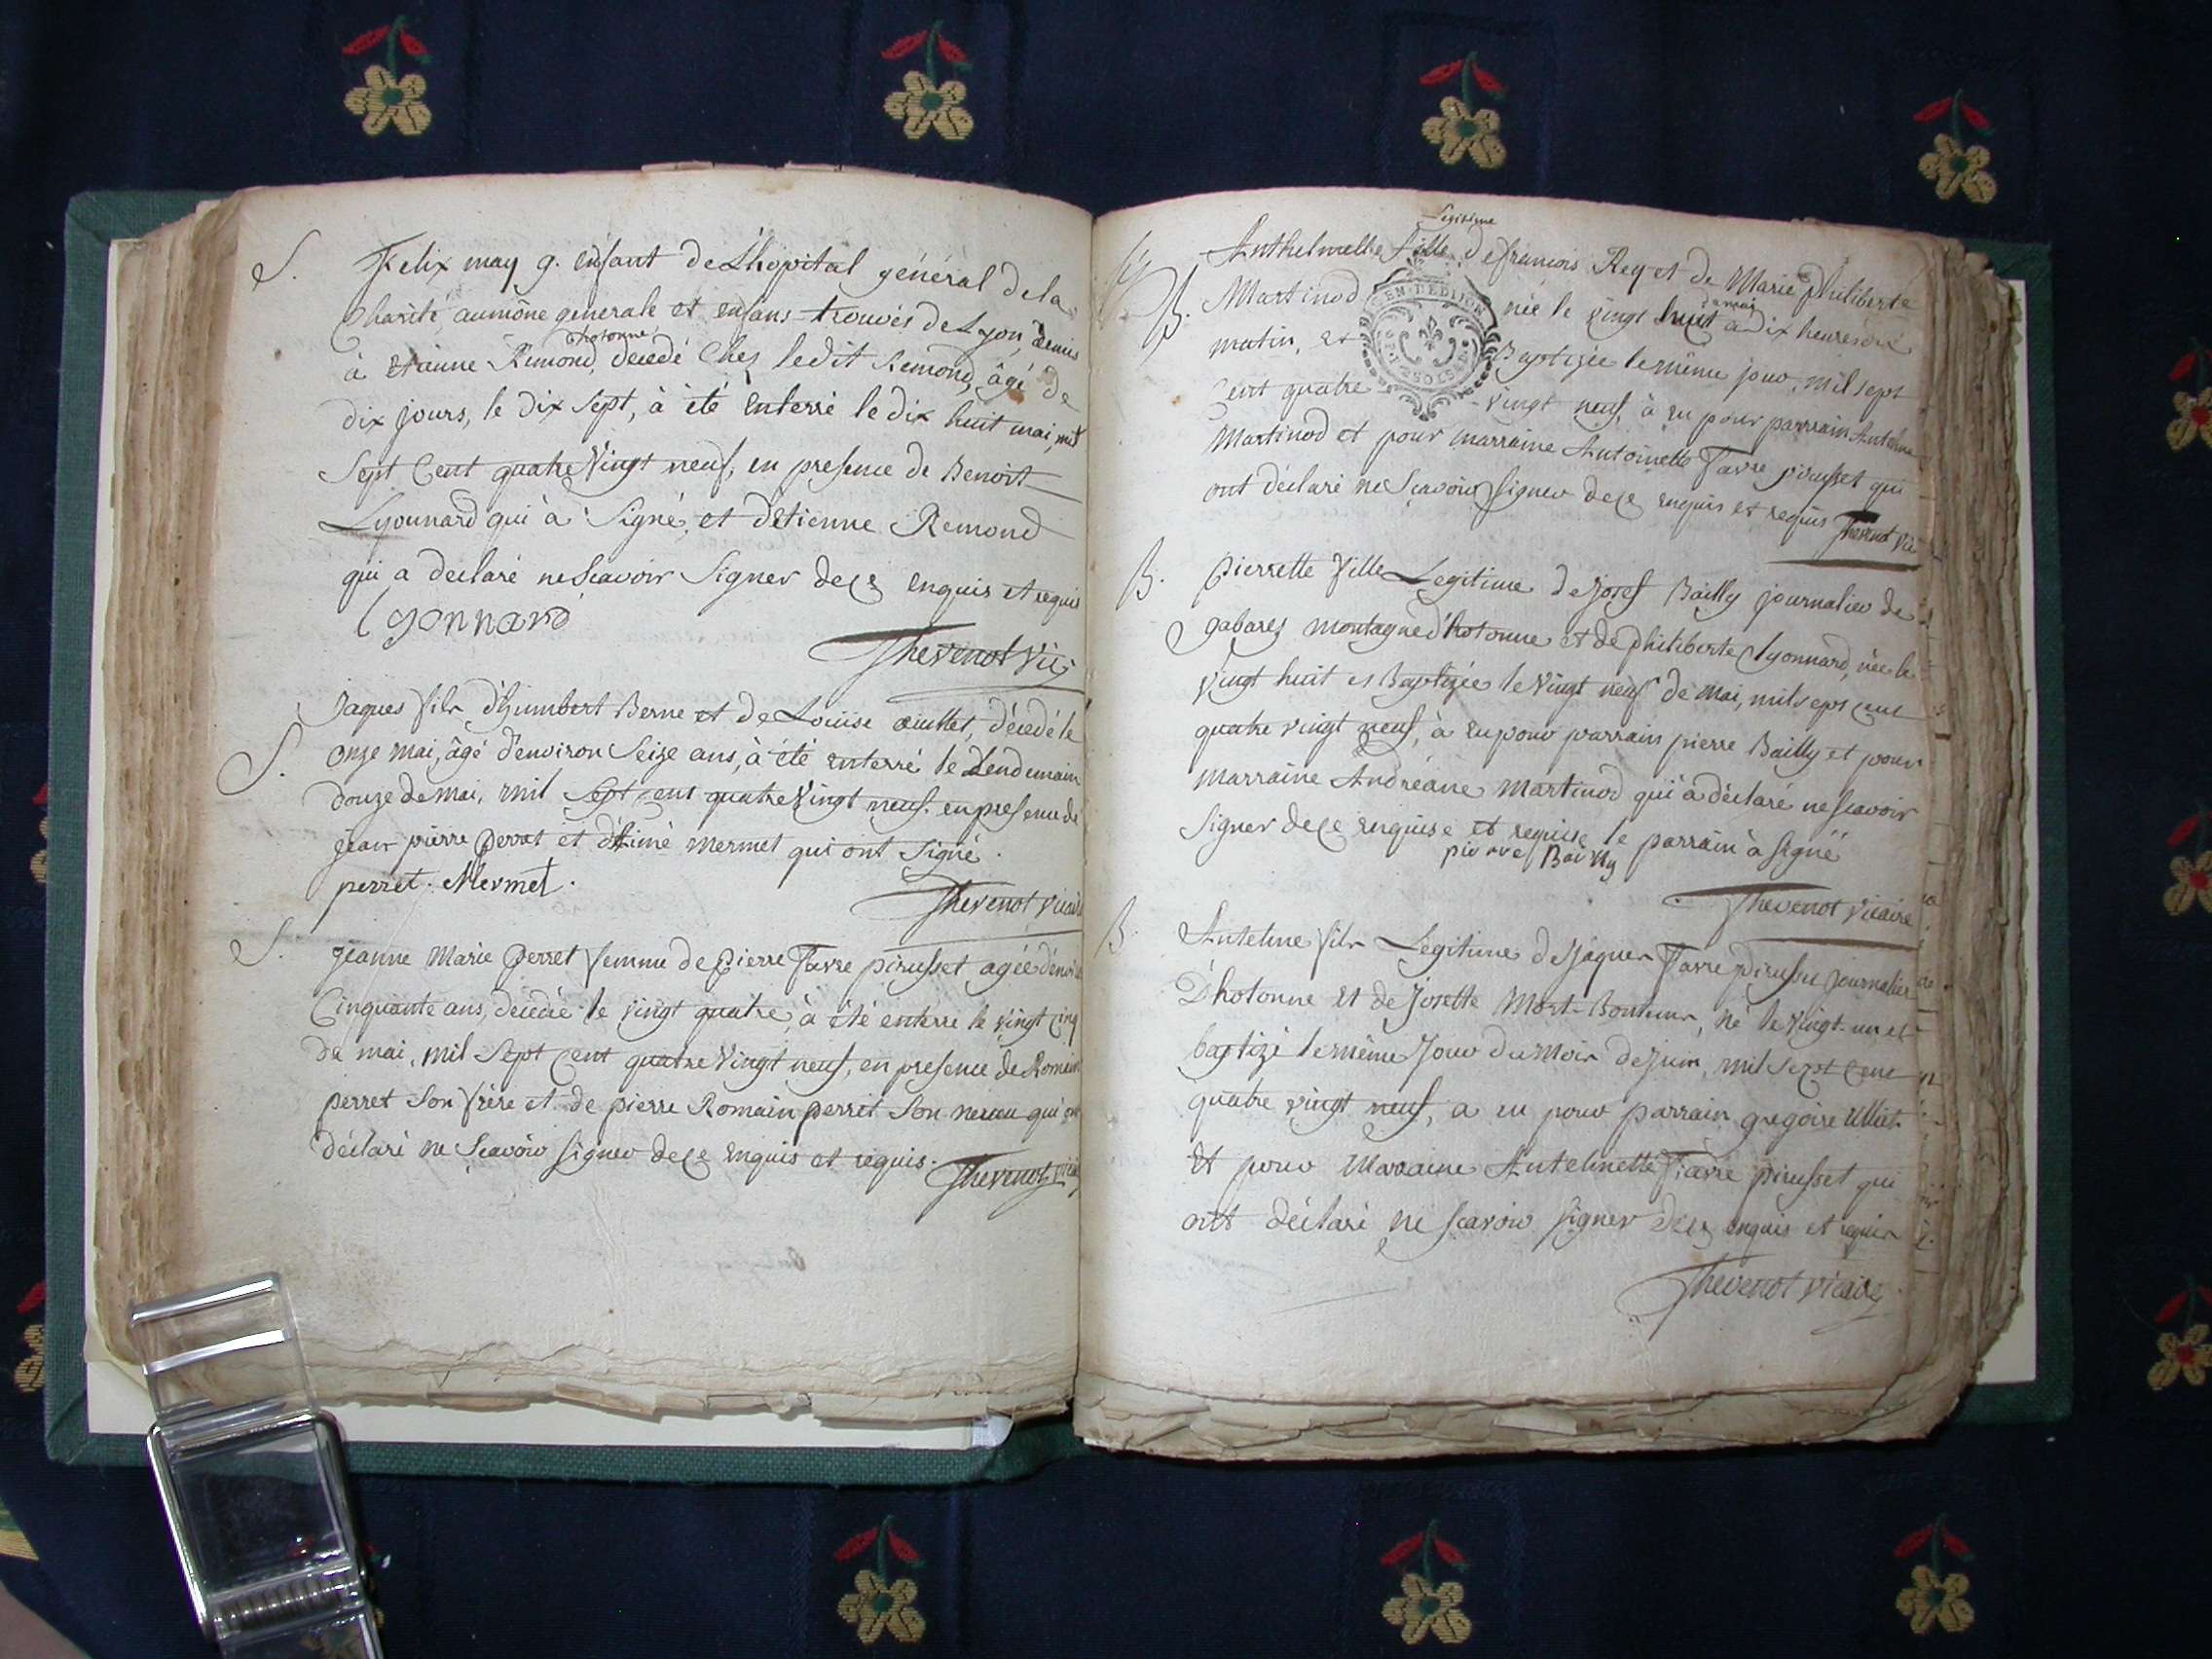 S. Felix may 9. enfant de L'hopital général de la
Charité, aumône generale et enfans trouvés de Lyon, remis
à etienne Remond, d'hotonne, décédé chez ledit Remond, âgé de
dix jours, le dix sept, à été enterré le dix huit mai, mil
sept cent quatre vingt neuf, en presence de Benoit
Lyonnard qui à signé, et d'etienne Remond
qui a declaré ne scavoir signer de ce enquis et requis
lyonnard
Thevenot vic:
Jaques fils d'humbert Berne et de Louise, décedé le
S. onze mai, âgé d'environ seize ans, à été enterré le lendemain
douze de mai, mil sept cent quatre vingt neuf. en presence de
jean pierre perret et d'Aimé mermet qui ont signé.
perret. Mermet.
Thevenot vicaire
S. jeanne Marie Perret femme de Pierre Favre pirusset agée d'environ
Cinquante ans, décédée le vingt quatre, à été enterré le vingt cinq
de mai, mil sept cent quatre vingt neuf, en presence de Romain
perret son frère et de pierre Romain perret son neveu qui ont
déclaré ne scavoir signer de ce enquis et requis.
Thevenot vicaire
Legitime
Anthelmette fille de francois Rey et de Marie philiberte
B. Martinod née le vingt huit de mai à dix heures du
GEN. DE DIJON
matin, et Baptizée le même jour, mil sept
cent quatre - vingt neuf, à eu pour parrain Antelme
Martinod et pour marraine Antoinette Favre pirusset qui
ont déclaré ne scavoir signer de ce enquis et requis Thevenot vic
B. Pierrette fille Legitime de Josef Bailly journalier de
gabarez montagne d'hotonne et de philiberte Lyonnard, née le
vingt huit et Baptizée le vingt neuf de mai, mil sept cent
quatre vingt neuf, à eu pour parrain pierre Bailly et pour
marraine Andréane Martinod qui à déclaré ne scavoir
signer de ce enquise et requise le parrain à signé
pierre Bailly
Thevenot vicaire
B. Antelme fils Legitime de Jaques Favre pirusset journalier
D'hotonne et de Josette Mort-Bontems, né le vingt-un et
baptizé le même jour du mois de juin, mil sept cent
quatre vingt neuf, a eu pour parrain gregoire Ulliet
et pour Maraine Antelmette Favre pirusset qui
ont déclaré ne scavoir signer de ce enquis et requis
Thevenot vicaire